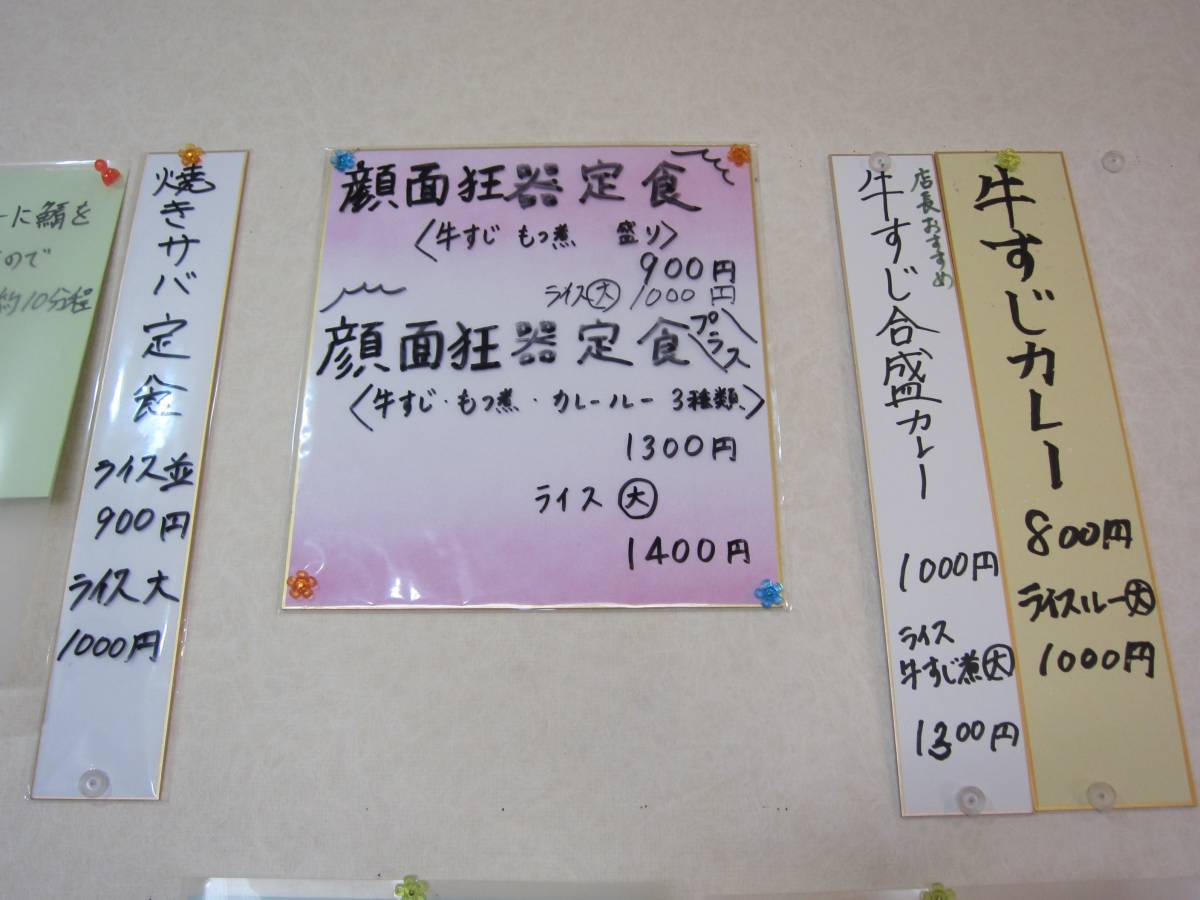 ーに鯖を
ので
約10分程
焼きサバ定食
ライス並
900円
ライス大
1000円
顔面狂器定食
〈牛すじ もつ煮 盛り〉
900円
ライス大 1000円
顔面狂器定食プラス
〈牛すじ・もつ煮・カレールー 3種類〉
1300円
ライス 大
1400円
店長おすすめ
牛すじ合盛カレー
1000円
ライス
牛すじ煮大
1300円
牛すじカレー
800円
ライスルー大
1000円